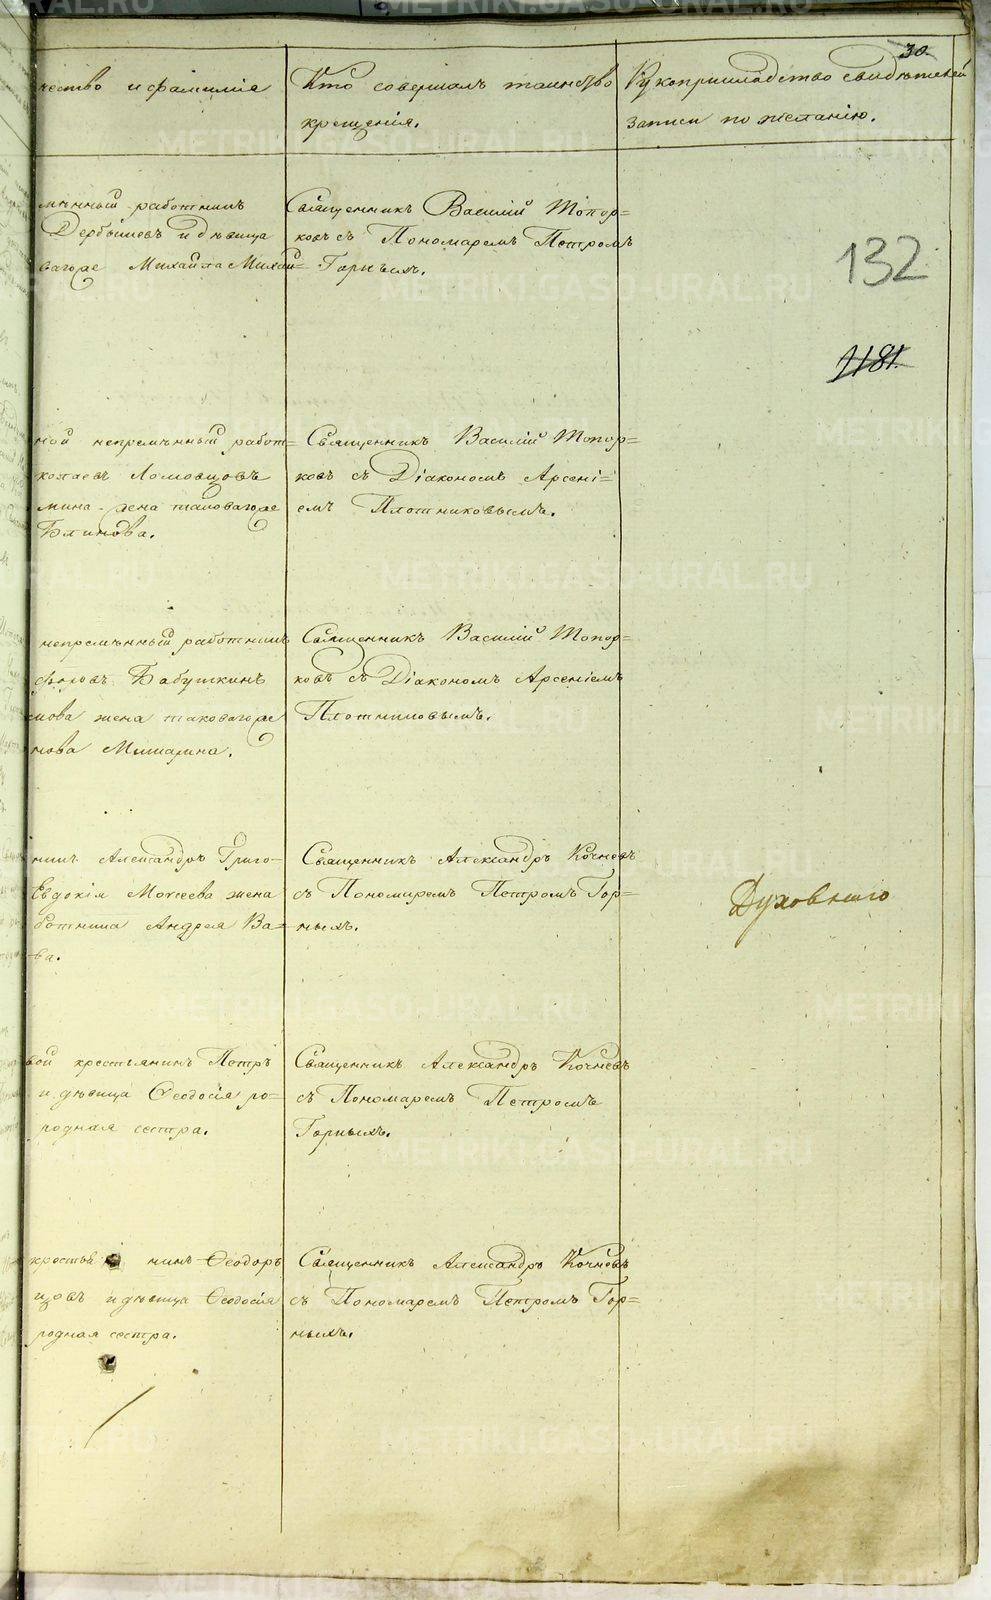 30.
чество и фамилія
Кто совершалъ таинство
крещенія.
Рукоприкладство свидѣтелей
записи по желанію.
мѣнный работникъ
Дербышевъ и дѣвица
вагоже Михаила Михай=
Священникъ Василій Топор=
ковъ съ Пономаремъ Петромъ
Горныхъ.
132
1181.
ной непремѣнный работ=
колаевъ Ломовцовъ
мина жена таковагоже
Блинова.
Священникъ Василій Топор=
ковъ съ Діакономъ Арсені=
емъ Плотниковымъ.
непремѣнный работникъ
Бабушкинъ
мова жена таковагоже
нова Мишарина.
Священникъ Василій Топор=
ковъ съ Діакономъ Арсеніемъ
Плотниковымъ.
никъ Александръ Григо=
Евдокія Мокеева жена
ботника Андрея Ва=
ва.
Священникъ Александръ Кочневъ
съ Пономаремъ Петромъ Гор=
ныхъ.
Духовнаго
вой крестьянинъ Петръ
и дѣвица Ѳеодосія ро=
родная сестра.
Священникъ Александръ Кочневъ
съ Пономаремъ Петромъ
Горныхъ.
крестья нинъ Ѳеодоръ
цовъ и дѣвица Ѳеодосія
родная сестра.
Священникъ Александръ Кочневъ
съ Пономаремъ Петромъ Гор=
ныхъ.
METRIKI.GASO-URAL.RU